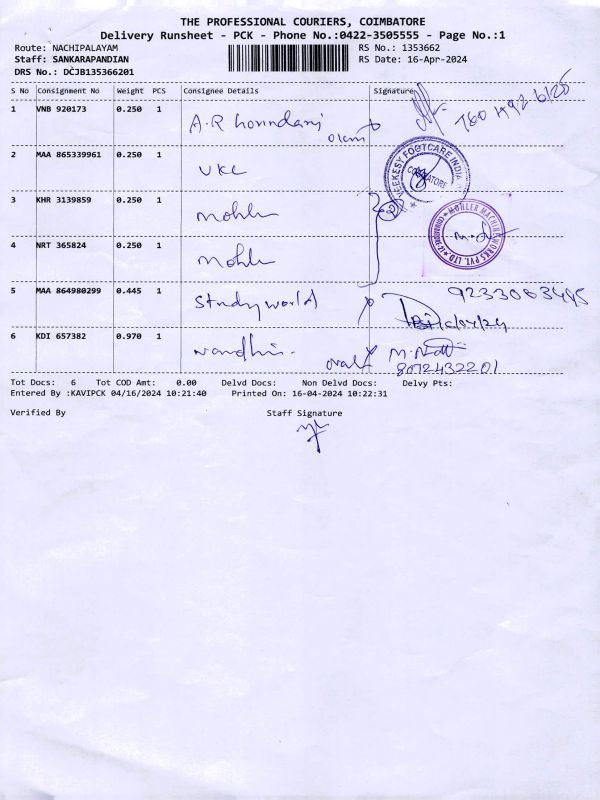 THE PROFESSIONAL COURIERS, COIMBATORE
Delivery Runsheet - PCK - Phone No.:0422-3505555 - Page No.:1
Route: NACHIPALAYAM
RS No.: 1353662
Staff: SANKARAPANDIAN
RS Date: 16-Apr-2024
DRS No.: DCJB135366201
S No Consignment No Weight PCS Consignee Details Signature
1 VNB 920173 0.250 1 A.R
2 MAA 865339961 0.250 1 UKC
VEEKESY FOOTCARE INDIA
COIMBATORE
3 KHR 3139859 0.250 1 mohler
MOHLER MACHINE WORKS PVT. LTD
4 NRT 365824 0.250 1 mohler
5 MAA 864980299 0.445 1 Study world
6 KDI 657382 0.970 1 nandhi
8072432201
Tot Docs: 6 Tot COD Amt: 0.00 Delvd Docs: Non Delvd Docs: Delvy Pts:
Entered By :KAVIPCK 04/16/2024 10:21:40 Printed On: 16-04-2024 10:22:31
Verified By Staff Signature